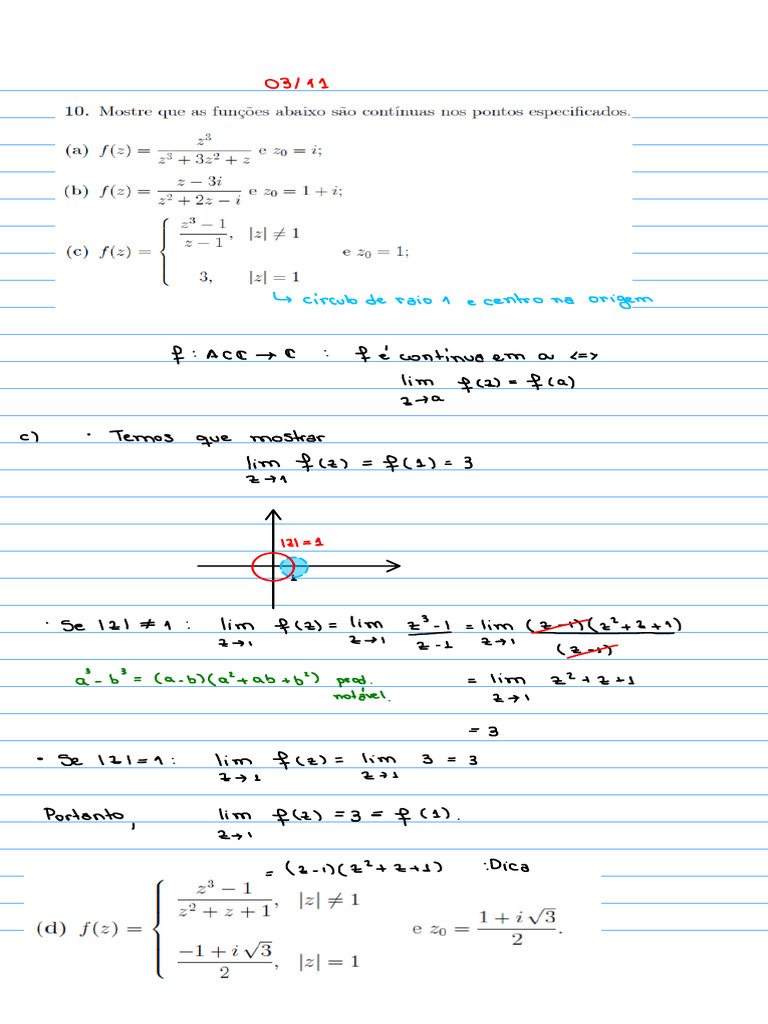 03/11
10. Mostre que as funções abaixo são contínuas nos pontos especificados.
(a) f(z) = z³ / (z³ + 3z² + z) e z₀ = i;
(b) f(z) = (z − 3i) / (z² + 2z − i) e z₀ = 1 + i;
(c) f(z) = { (z³ − 1) / (z − 1), |z| ≠ 1
3, |z| = 1 e z₀ = 1;
↳ círculo de raio 1 e centro na origem
f : A⊂ℂ → ℂ : f é contínua em a <=>
lim z→a f(z) = f(a)
c) · Temos que mostrar
lim z→1 f(z) = f(1) = 3
|z| = 1
1
· Se |z| ≠ 1 : lim z→1 f(z) = lim z→1 (z³ - 1) / (z - 1) = lim z→1 (z-1)(z² + z + 1) / (z-1)
a³ - b³ = (a-b)(a² + ab + b²) prod. notável.
= lim z→1 z² + z + 1
= 3
· Se |z| = 1 : lim z→1 f(z) = lim z→1 3 = 3
Portanto, lim z→1 f(z) = 3 = f(1).
= (z-1)(z² + z + 1) :Dica
(d) f(z) = { (z³ − 1) / (z² + z + 1), |z| ≠ 1
(−1 + i √3) / 2, |z| = 1 e z₀ = (1 + i √3) / 2.